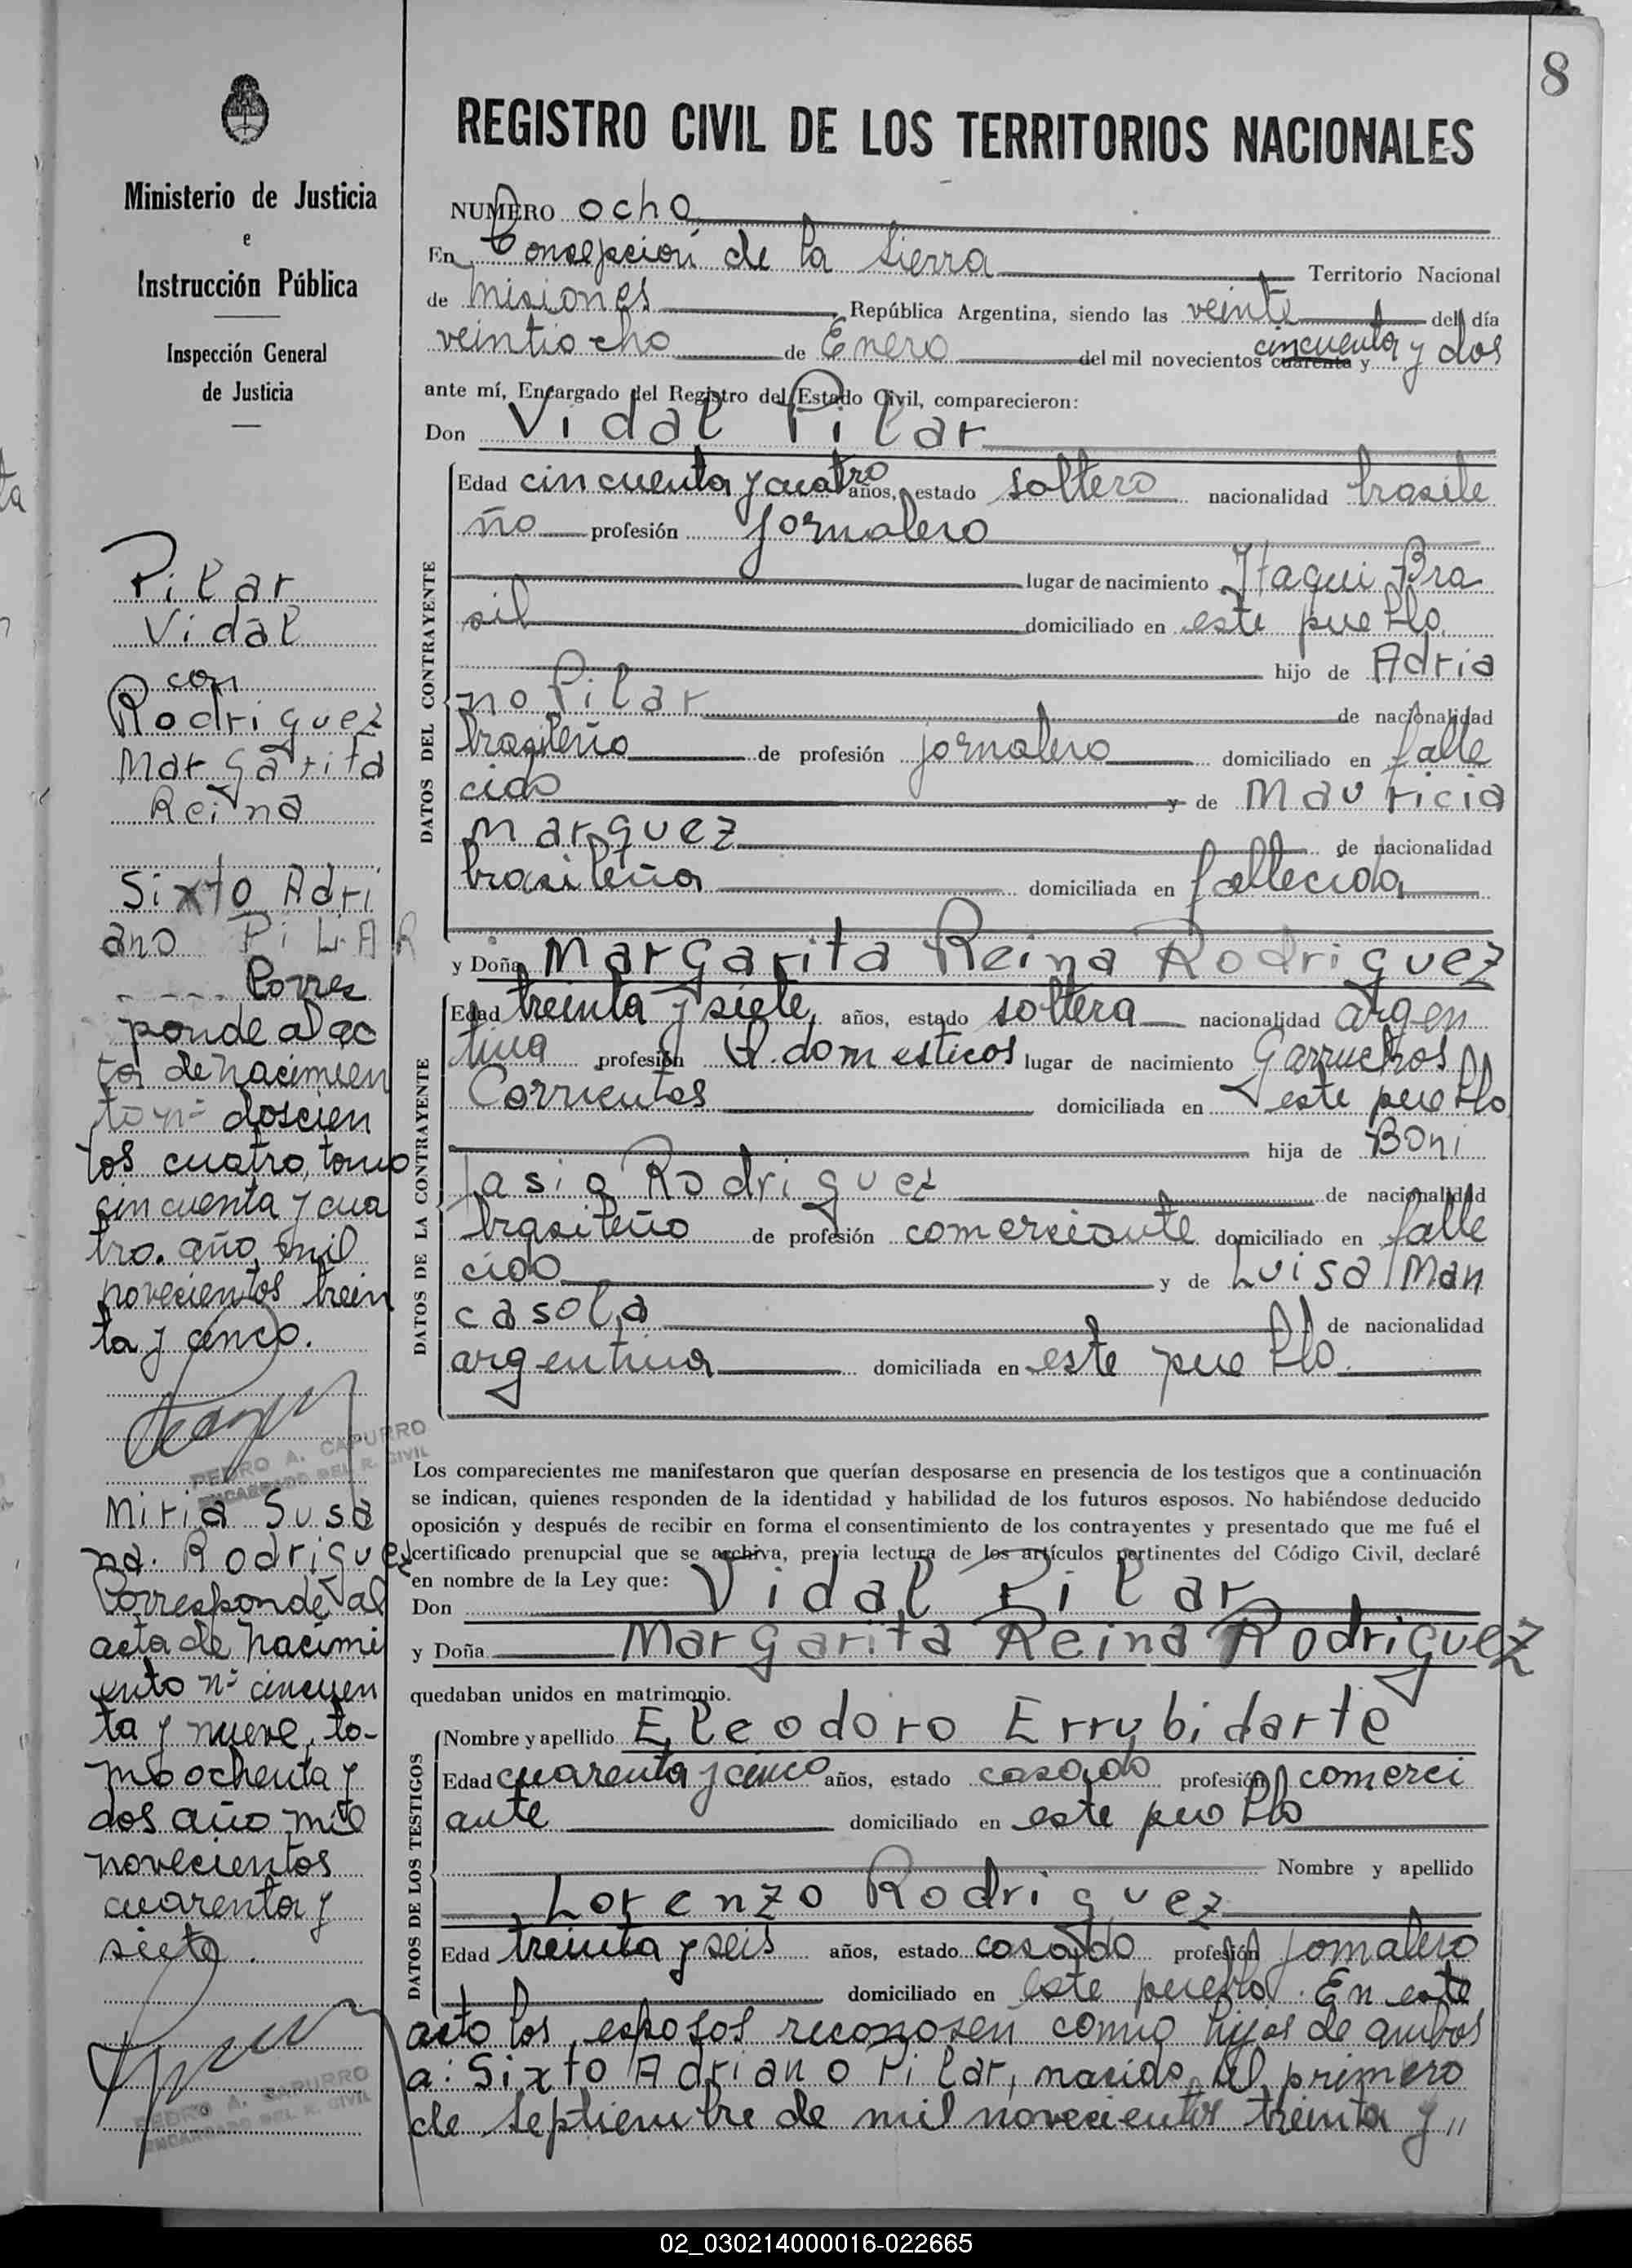 8
Ministerio de Justicia
e
Instrucción Pública
Inspección General
de Justicia
Pilar
Vidal
con
Rodriguez
Margarita
Reina
Sixto Adri
ano PiLAR
Corres
ponde al ac
ta de nacimien
to nº doscien
tos cuatro, tomo
cincuenta y cua
tro. año mil
novecientos trein
ta y cinco.
PEDRO A. CAPURRO
ENCARGADO DEL R. CIVIL
Miria Susa
na. Rodriguez
Corresponde al
acta de nacimi
ento nº cincuen
ta y nueve, to-
mo ochenta y
dos año mil
novecientos
cuarenta y
siete.
PEDRO A. CAPURRO
ENCARGADO DEL R. CIVIL
REGISTRO CIVIL DE LOS TERRITORIOS NACIONALES
NUMERO ocho
En Concepción de la Sierra Territorio Nacional
de Misiones República Argentina, siendo las veinte del día
veintiocho de Enero del mil novecientos cuarenta y cincuenta y dos
ante mí, Encargado del Registro del Estado Civil, comparecieron:
Don Vidal Pilar
DATOS DEL CONTRAYENTE
Edad cincuenta y cuatro años, estado soltero nacionalidad brasile
ño profesión jornalero
lugar de nacimiento Itaqui Bra
sil domiciliado en este pueblo
hijo de Adria
no Pilar de nacionalidad
brasileño de profesión jornalero domiciliado en falle
cido y de Mauricia
Marquez de nacionalidad
brasileña domiciliada en fallecida
y Doña Margarita Reina Rodriguez
DATOS DE LA CONTRAYENTE
Edad treinta y siete años, estado soltera nacionalidad argen
tina profesión Q. domesticos lugar de nacimiento Garruchos
Corrientes domiciliada en este pueblo
hija de Boni
fasio Rodriguez de nacionalidad
brasileño de profesión comerciante domiciliado en falle
cido y de Luisa Man
casola de nacionalidad
argentina domiciliada en este pueblo.
Los comparecientes me manifestaron que querían desposarse en presencia de los testigos que a continuación
se indican, quienes responden de la identidad y habilidad de los futuros esposos. No habiéndose deducido
oposición y después de recibir en forma el consentimiento de los contrayentes y presentado que me fué el
certificado prenupcial que se archiva, previa lectura de los artículos pertinentes del Código Civil, declaré
en nombre de la Ley que:
Don Vidal Pilar
y Doña Margarita Reina Rodriguez
quedaban unidos en matrimonio.
DATOS DE LOS TESTIGOS
Nombre y apellido Eleodoro Errubidarte
Edad cuarenta y cinco años, estado casado profesión comerci
ante domiciliado en este pueblo
Nombre y apellido
Lorenzo Rodriguez
Edad treinta y seis años, estado casado profesión jornalero
domiciliado en este pueblo. En este
acto los esposos reconosen como hijos de ambos
a: Sixto Adriano Pilar, nacido el primero
de septiembre de mil novecientos treinta y "
02_030214000016-022665